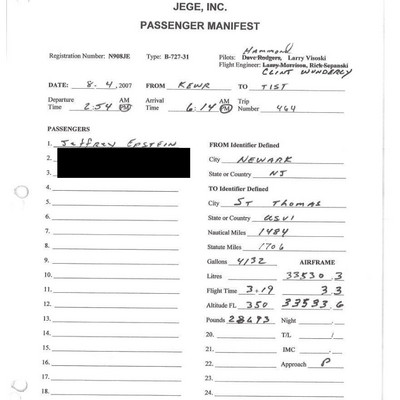 JEGE, INC.
PASSENGER MANIFEST
Hammond
Registration Number: N908JE Type: B-727-31 Pilots: Dave Rodgers, Larry Visoski
Flight Engineer: Larry Morrison, Rich
Clint
DATE: 8.4,2007 FROM KEWR TO TIST
Departure Time 2:54 AM PM Arrival Time 6:14 AM PM Trip Number 464
PASSENGERS FROM Identifier Defined
1. Jeffrey Epstein City NEWARK
2. State or Country NJ
3. TO Identifier Defined
4. City ST Thomas
5. State or Country USVI
6. Nautical Miles 1484
7. Statute Miles 1706
8. Gallons 4132 AIRFRAME
9. Litres 33530.3
10. Flight Time 3.19 3.3
11. Altitude FL 350 33533.6
12. Pounds 28693 Night
13. 20. T/L /
14. 21. IMC,
15. 22. Approach P
16. 23.
18. 24.